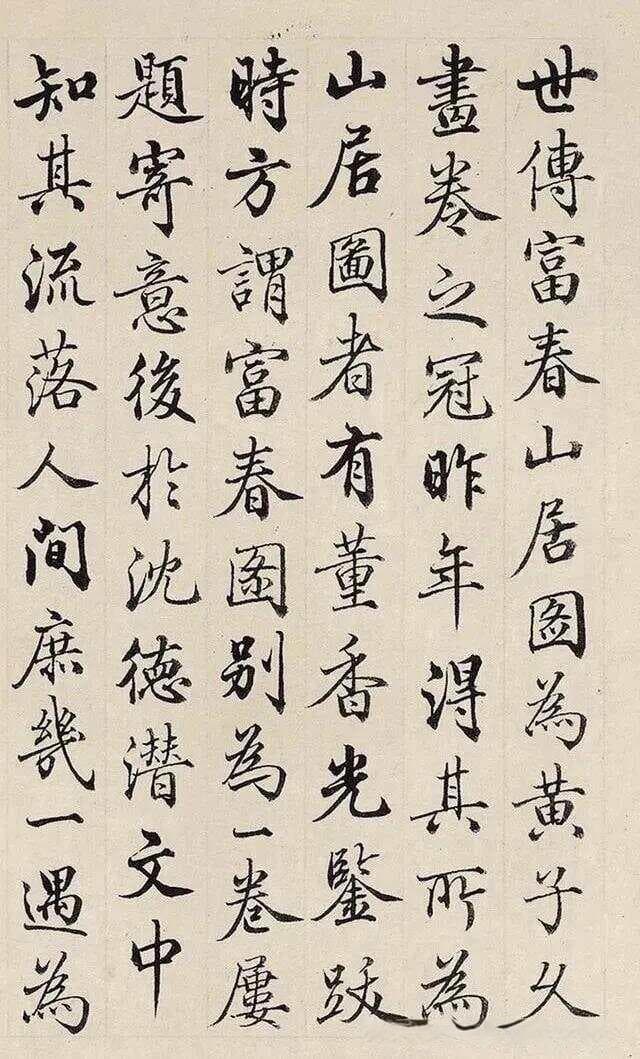 世傳富春山居図為黄子久
畫卷之冠昨年得其所為
山居圖者有董香光鑒跋
時方謂富春图别為一卷屢
題寄意後於沈德潜文中
知其流落人間庶幾一遇為